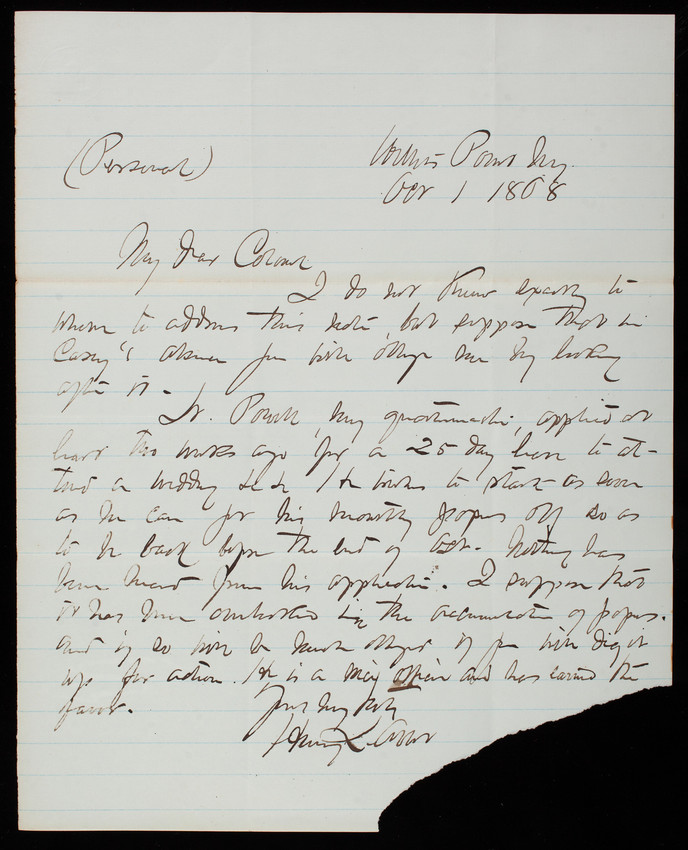 (Personal)
Willets Point N.Y.
Oct 1 1888
My dear Colonel
I do not know exactly to
whom to address this note, but suppose that in
Casey's absence you will oblige me by looking
after it -
Lt. Powell, my quartermaster, applied at
least two weeks ago for a 25 day leave to at-
tend a wedding &c &c He wishes to start as soon
as he can get his monthly papers off so as
to be back before the end of Oct. Nothing has
been heard from his application. I suppose that
it has been overlooked in the accumulation of papers.
and if so will be much obliged if you will dig it
up for action. He is a officer and has earned the
favor.
Yours very truly
Henry L Abbot